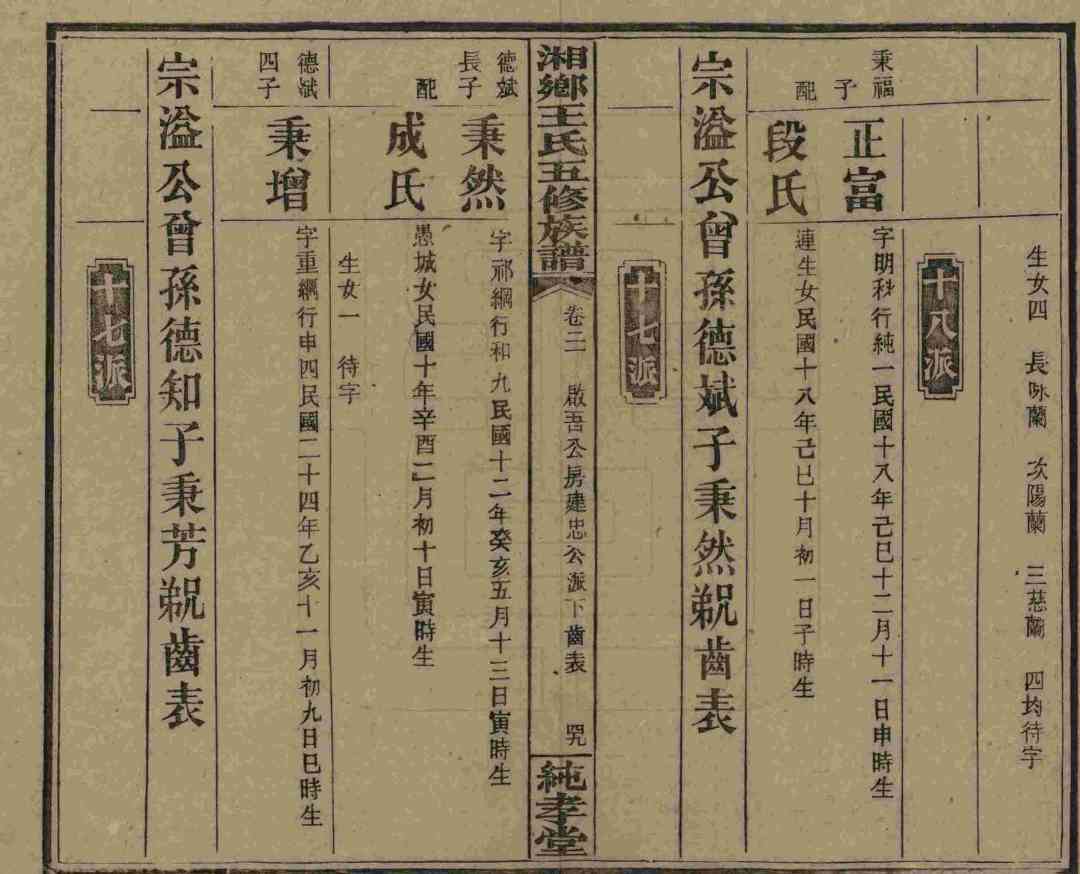 生女四 長咏蘭 次陽蘭 三慈蘭 四均待字
十八派
秉福子
正富
字明秒行純一民國十八年己巳十二月十一日申時生
配
段氏
連生女民國十八年己巳十月初一日子時生
宗溢公曾孫德斌子秉然覾齒表
十七派
湘鄉王氏五修族譜
卷二 啟吾公房建忠公派下齒表
純孝堂
德斌長子
秉然
字祁綱行和九民國十二年癸亥五月十三日寅時生
配
成氏
愚城女民國十年辛酉二月初十日寅時生
生女一 待字
德斌四子
秉增
字重綱行申四民國二十四年乙亥十一月初九日巳時生
宗溢公曾孫德知子秉芳覾齒表
十七派